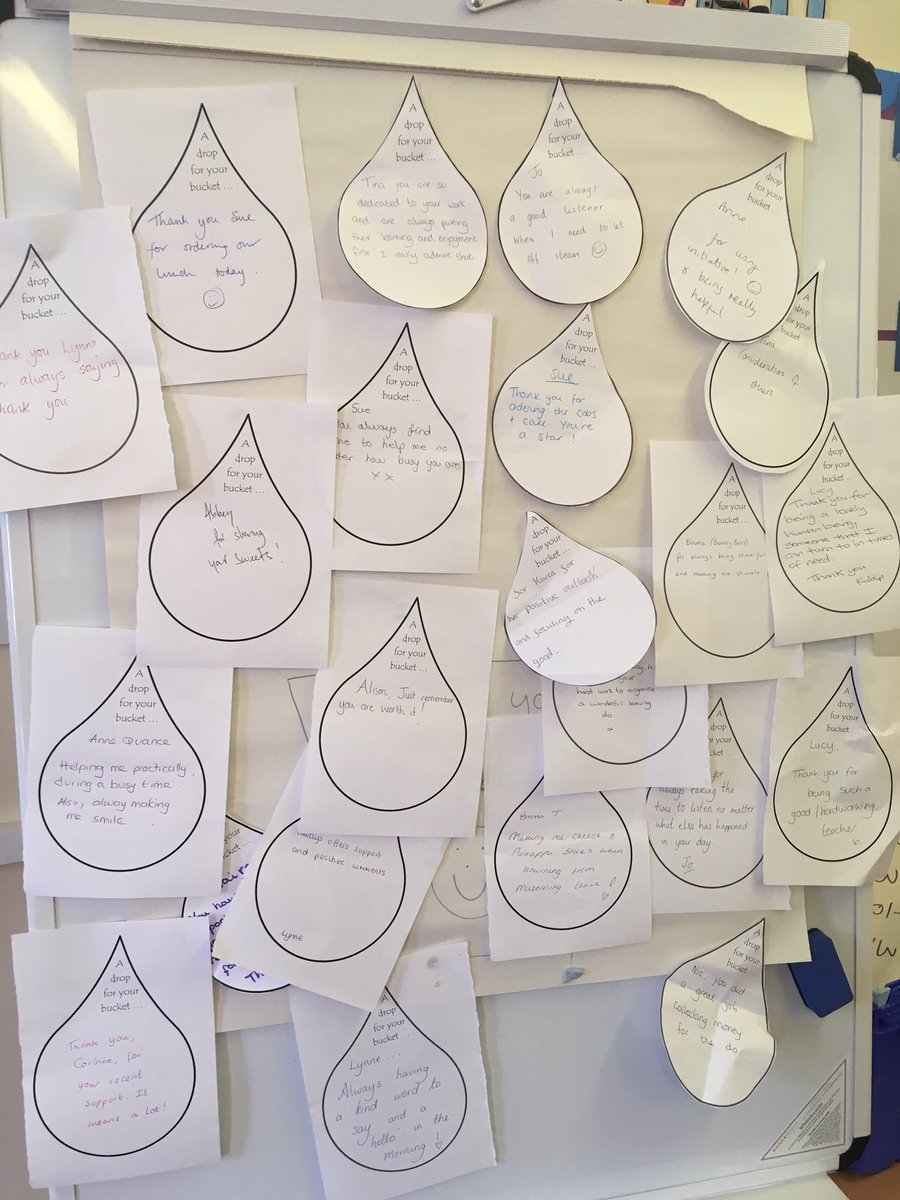 A
drop
for your
bucket ...
Thank you Sue
for ordering our
lunch today.
A
drop
for your
bucket ...
Tina you are so
dedicated to your work
and are always putting
their learning and enjoyment
first I really admire that
A
drop
for your
bucket ...
Jo
You are always
a good listener
when I need to let
off steam
A
drop
for your
bucket ...
Anne
for using
initiative!
& being really
helpful
A
drop
for your
bucket ...
Lynne
always saying
thank you
A
drop
for your
bucket ...
Sue
always find
to help me no
how busy you are
xx
A
drop
for your
bucket ...
Sue
Thank you for
ordering the cobs
+ cake You're
a star!
A
for your
Consideration of
others
A
drop
for your
bucket ...
Abbey
for sharing
your sweets!
A
drop
for your
bucket ...
for Karen for
her positive outlook
and focusing on the
good.
A
drop
for your
bucket ...
Emma
for always being cheerful
and making me chuckle
A
drop
for your
bucket ...
Lucy
Thank you for
being a lovely
human being,
someone that I
can turn to in times
of need.
Thank you
Kuldip
A
drop
for your
bucket ...
Anne Quance
Helping me practically,
during a busy time.
Also, alway making
me smile
A
drop
for your
bucket ...
Alison, Just remember
you are worth it!
your
hard work to organise
a wonderful leaving
do.
x
A
drop
for your
for
always taking the
time to listen no matter
what else has happened
in your day.
Jo
A
drop
for your
bucket ...
Lucy,
Thank you for
being such a
good/hardworking
teacher
for your
bucket ...
always offers support
and positive comments
Lynne
Emma T
Making me cheese &
sticks when
returning from
maternity leave!
A
drop
for your
bucket ...
Thank you,
Corinne, for
your recent
support. It
means a lot!
A
drop
for your
bucket ...
Lynne ...
Always having
a kind word to
say and a
'hello' in the
morning!
A
drop
for your
bucket
Nic, you did
a great job
collecting money
for the do.